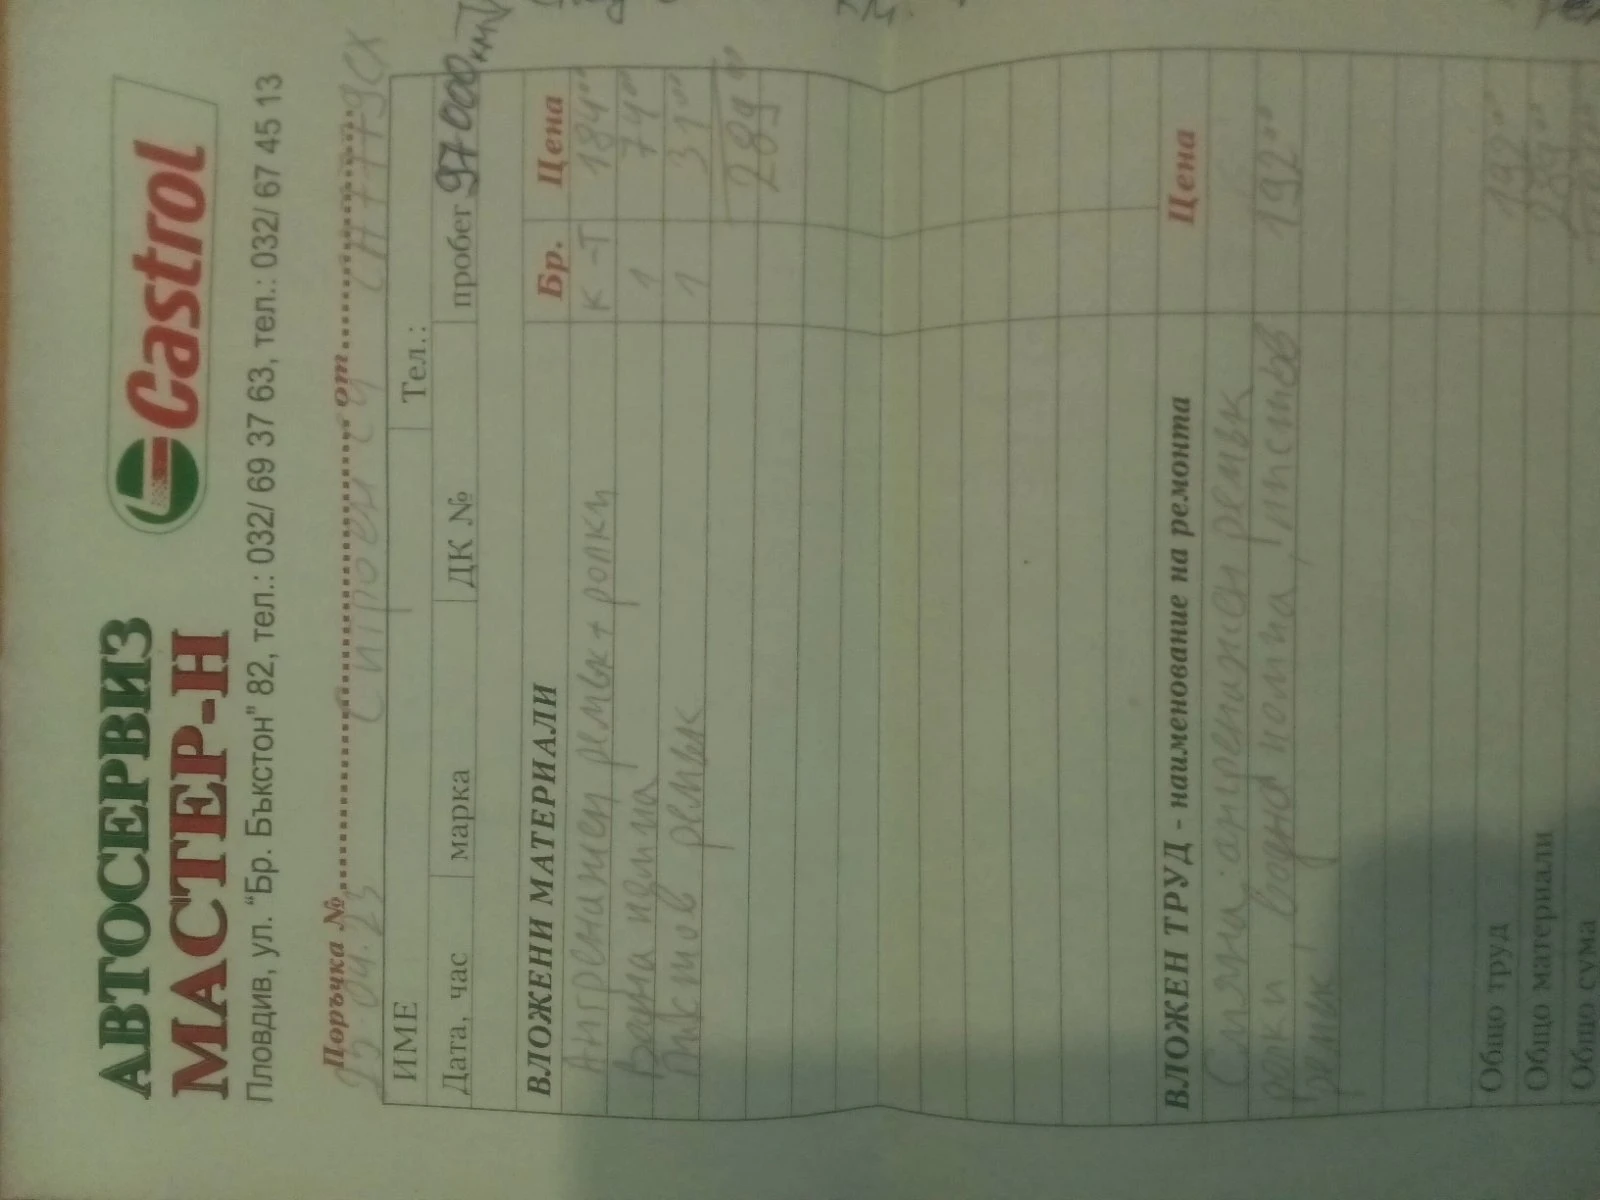 АВТОСЕРВИЗ
МАСТЕР-Н
Castrol
Пловдив, ул. "Бр. Бъкстон" 82, тел.: 032/ 69 37 63, тел.: 032/ 67 45 13
Поръчка № от
04.23 Ситроен
ИМЕ Тел.:
Дата, час марка ДК № пробег 97000 км
ВЛОЖЕНИ МАТЕРИАЛИ Бр. Цена
Ангренажен ремък + ролки к-т 184 00
Водна помпа 1 74 00
Пистов ремък 1 31 00
289 00
ВЛОЖЕН ТРУД - наименование на ремонта Цена
Смяна: ангренажен ремък
ролки, водна помпа, пистов 192 00
ремък
Общо труд 192 00
Общо материали 289 00
Общо сума